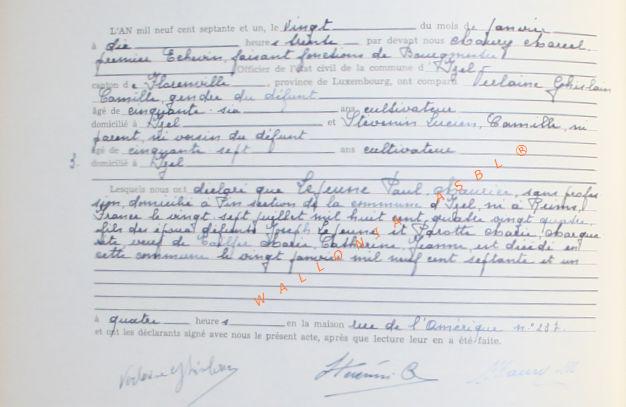 L'AN mil neuf cent septante et un, le vingt du mois de Janvier
à dix heures trente par devant nous Maury Marcel,
premier Echevin, faisant fonctions de Bourgmestre
Officier de l'état civil de la commune d'Izel
canton de Florenville, province de Luxembourg, ont comparu Verlaine Ghislain
Camille, gendre du défunt
âgé de cinquante-six ans cultivateur
domicilié à Izel et Stevenin Lucien, Camille, ni
parent, ni voisin du défunt
âgé de cinquante-sept ans cultivateur
3. domicilié à Izel
Lesquels nous ont déclaré que Lejeune Paul, Maurice, sans profes
sion, domicilié à Pin section de la commune d'Izel, né à Reims,
France le vingt sept juillet mil huit cent quatre vingt quatre,
fils des époux défunts Joseph Lejeune et Pârotte Marie, Margue
rite veuf de Marie, Catherine, Jeanne, est décédé en
cette commune le vingt janvier mil neuf cent septante et un
à quatre heures en la maison rue de l'Amérique n° 237.
et ont les déclarants signé avec nous le présent acte, après que lecture leur en a été faite.
WALLONIA ASBL ®
Verlaine Ghislain Stevenin Maury M